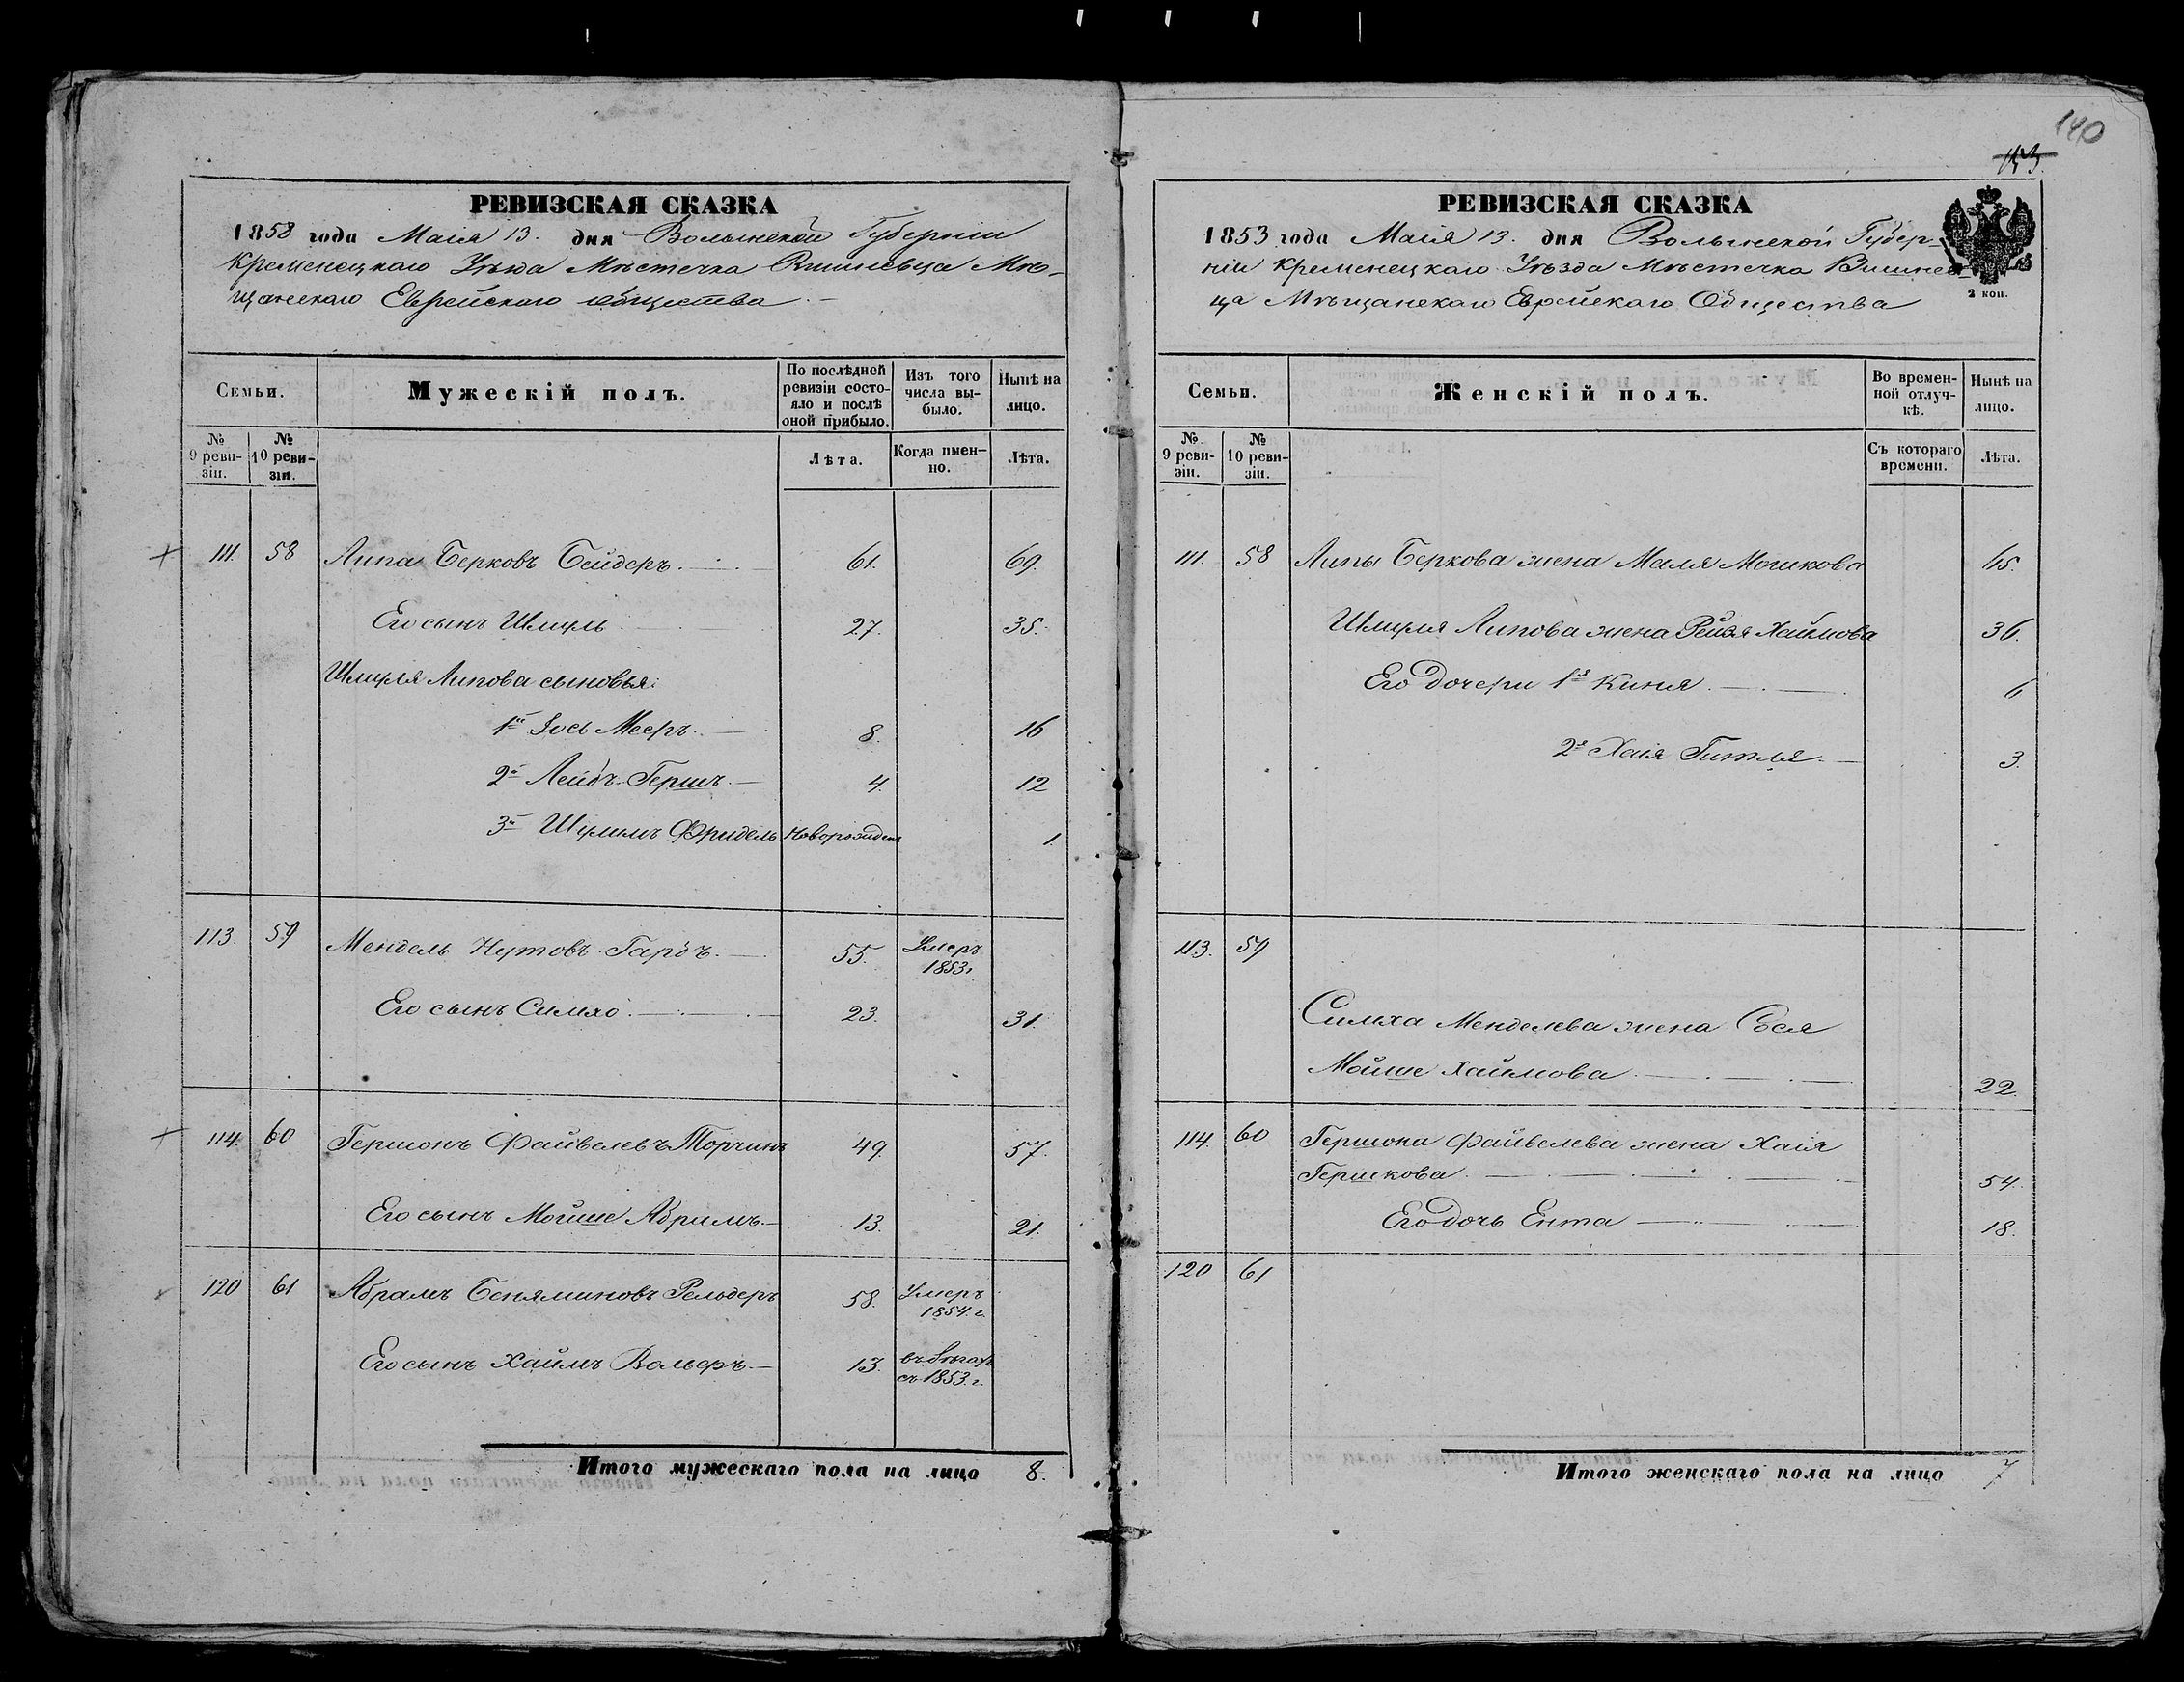 РЕВИЗСКАЯ СКАЗКА
1858 года Маія 13. дня Волынской Губерніи
Кременецкаго Уѣзда Мѣстечка Вишневца Мѣ-
щанскаго Еврейскаго общества
Семьи.
Мужескій полъ.
По послѣдней ревизіи состо-яло и послѣ оной прибыло.
Изъ того числа вы-было.
Нынѣ на лицо.
№ 9 реви-зіи.
№ 10 реви-зіи.
Лѣта.
Когда имен-но.
Лѣта.
111. 58 Липа Берковъ Бейдеръ. 61. 69.
Его сынъ Шмуль 27. 35.
Шмуля Липова сыновья:
1й Іось Мееръ. 8. 16
2й Лейбъ-Гершъ. 4. 12
3й Шулимъ Фридель Новорожден 1.
113. 59 Мендель Нутовъ Гарбъ. 55. Умеръ 1853г.
Его сынъ Симхо. 23. 31.
114. 60 Гершонъ Файвелевъ Торчинъ 49. 57.
Его сынъ Мойше Абрамъ. 13. 21.
120 61 Абрамъ Беняминовъ Рельдеръ 58. Умеръ 1854.г.
Его сынъ Хаимъ Вольеръ. 13. въ бѣгахъ съ 1853.г.
Итого мужескаго пола на лицо 8.
140
РЕВИЗСКАЯ СКАЗКА
1853 года Маія 13. дня Волынской Губер-
ніи Кременецкаго Уѣзда Мѣстечка Вишнев-
ца Мѣщанскаго Еврейскаго Общества
2 коп.
Семьи.
Женскій полъ.
Во времен-ной отлуч-кѣ.
Нынѣ на лицо.
№ 9 реви-зіи.
№ 10 реви-зіи.
Съ котораго времени.
Лѣта.
111. 58 Липы Беркова жена Маля Мошкова 65.
Шмуля Липова жена Рейзя Хаймова 36.
Его дочери 1я Киня. 6
2я Хаія Гитля. 3.
113. 59
Симха Менделева жена Сося
Мойше Хаимова 22.
114. 60 Гершона Файвелева жена Хаія
Гершкова. 54.
Его дочь Ента 18.
120 61
Итого женскаго пола на лицо 7